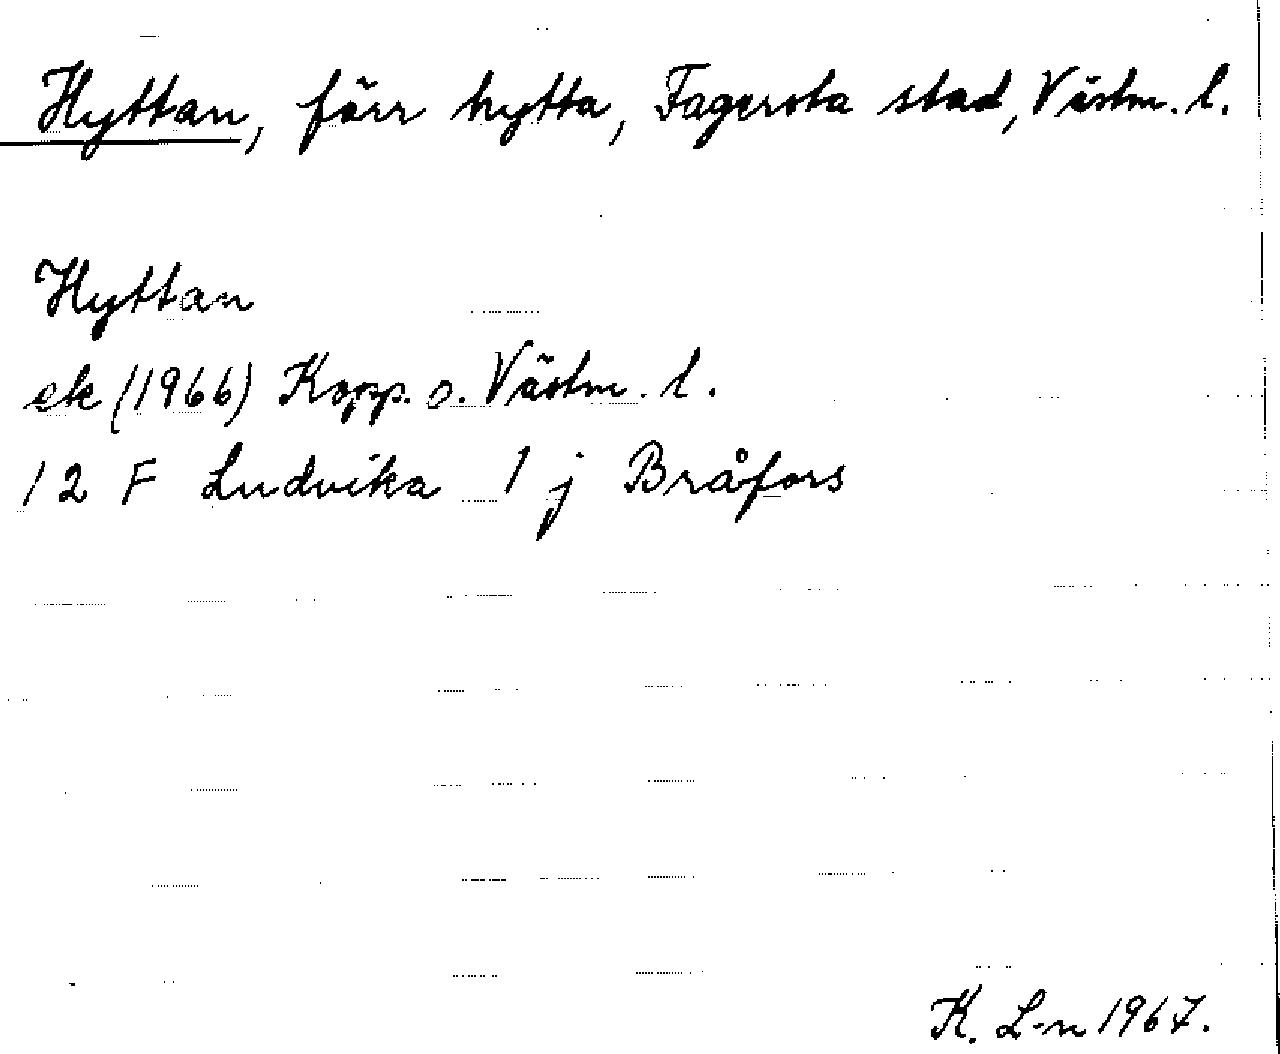 Hyttan, förr hytta, Fagersta stad, Västm. l.
Hyttan
ek (1966) Kopp. o. Västm. l.
12 F Ludvika 1 j Bråfors
K. L-n 1967.